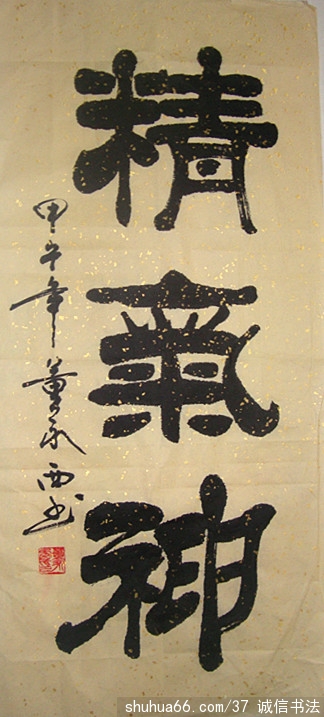 精氣神
甲午年董永西书
shuhua66.com/37 诚信书法